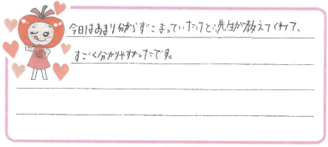 今日はあまり分からずこまっていたけど、先生が教えてくれて、
すごく分かりやすかったです。